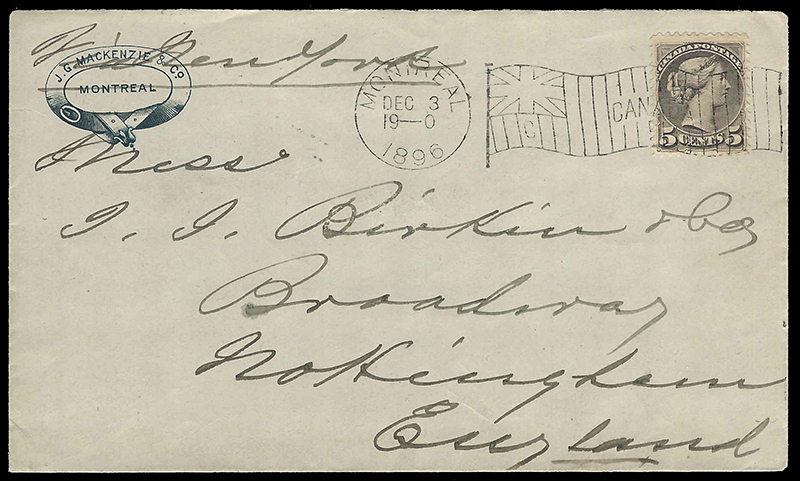 Via New York
J. G. MACKENZIE & Co
MONTREAL
MONTREAL
DEC 3
19—0
1896
C
CAN
CANADA POSTAGE
5 CENTS 5
Mess
I. I. Birkin & Co
Broadway
Nottingham
England